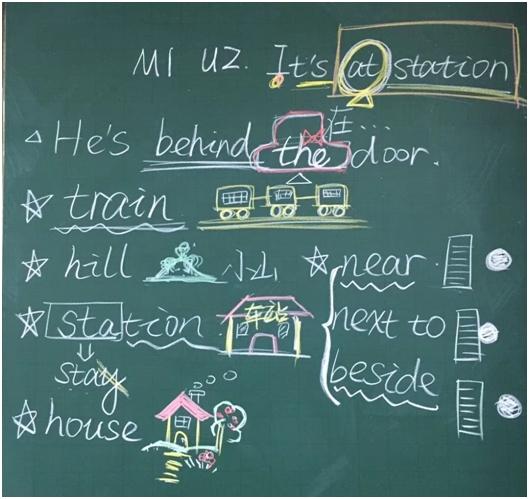 M1 U2. It's at station
在...
He's behind the door.
train
hill 小山
near
station 车站
next to
stay
beside
house